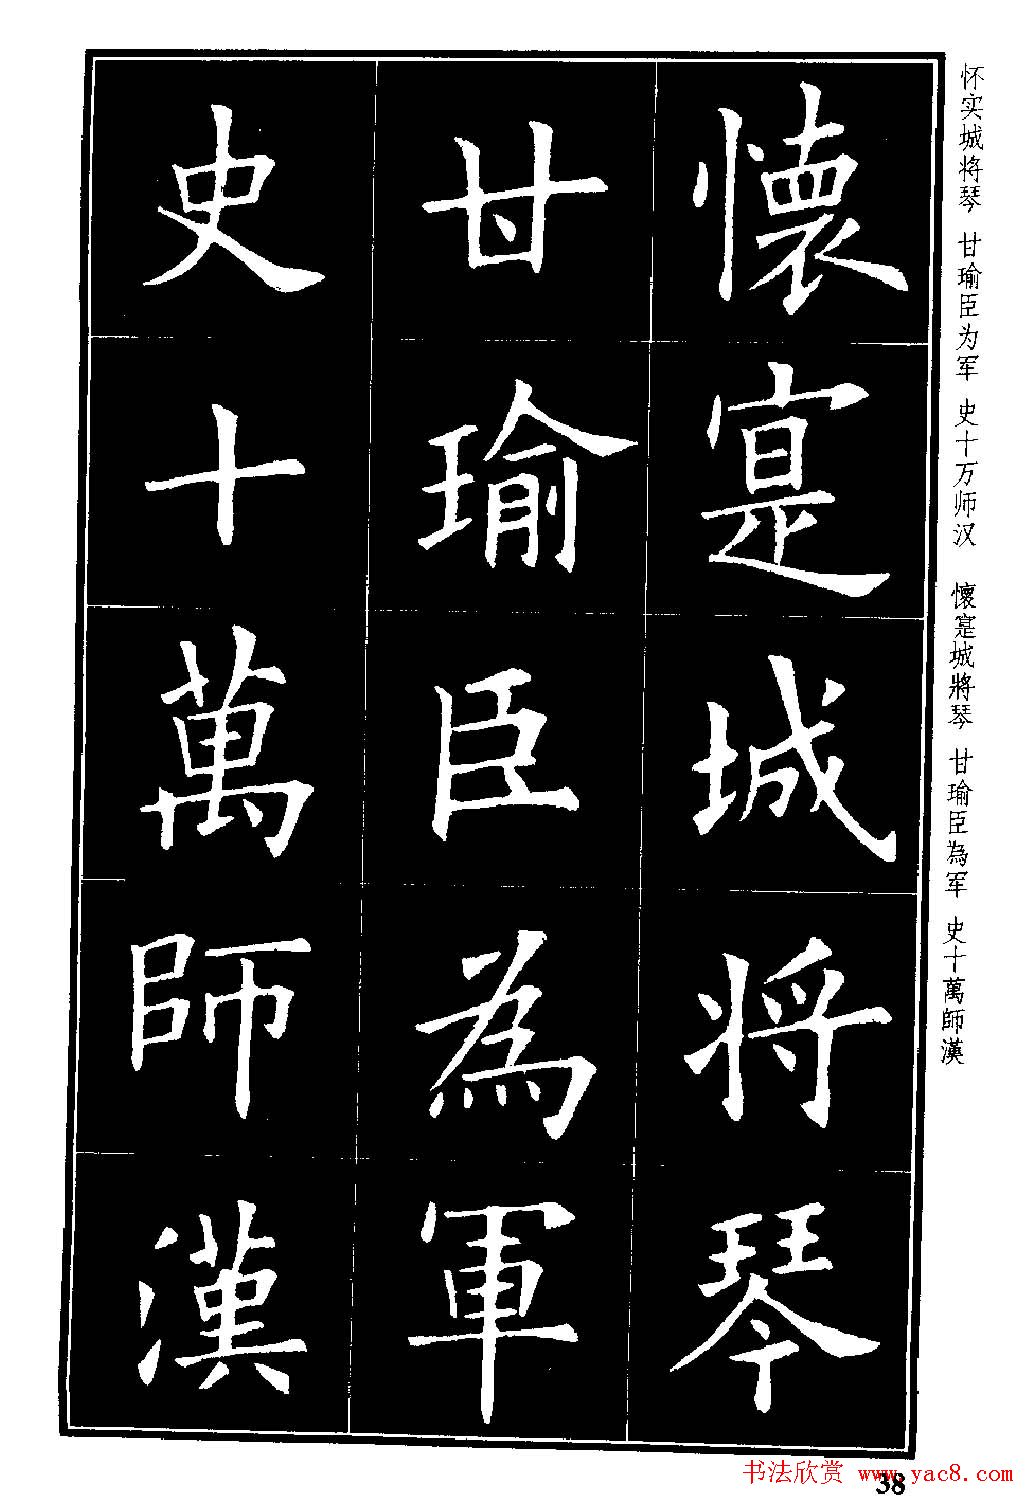 懷寔城将琴
甘瑜臣為軍
史十萬師漢
怀实城将琴 甘瑜臣为军 史十万师汉 懷寔城將琴 甘瑜臣為军 史十萬師漢
38
书法欣赏 www.yac8.com